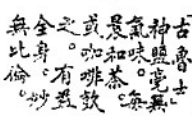 古魯士
神鹽毫無
氣味。每
晨和茶。
或咖啡飲
之。有益
全身。妙
無比倫。